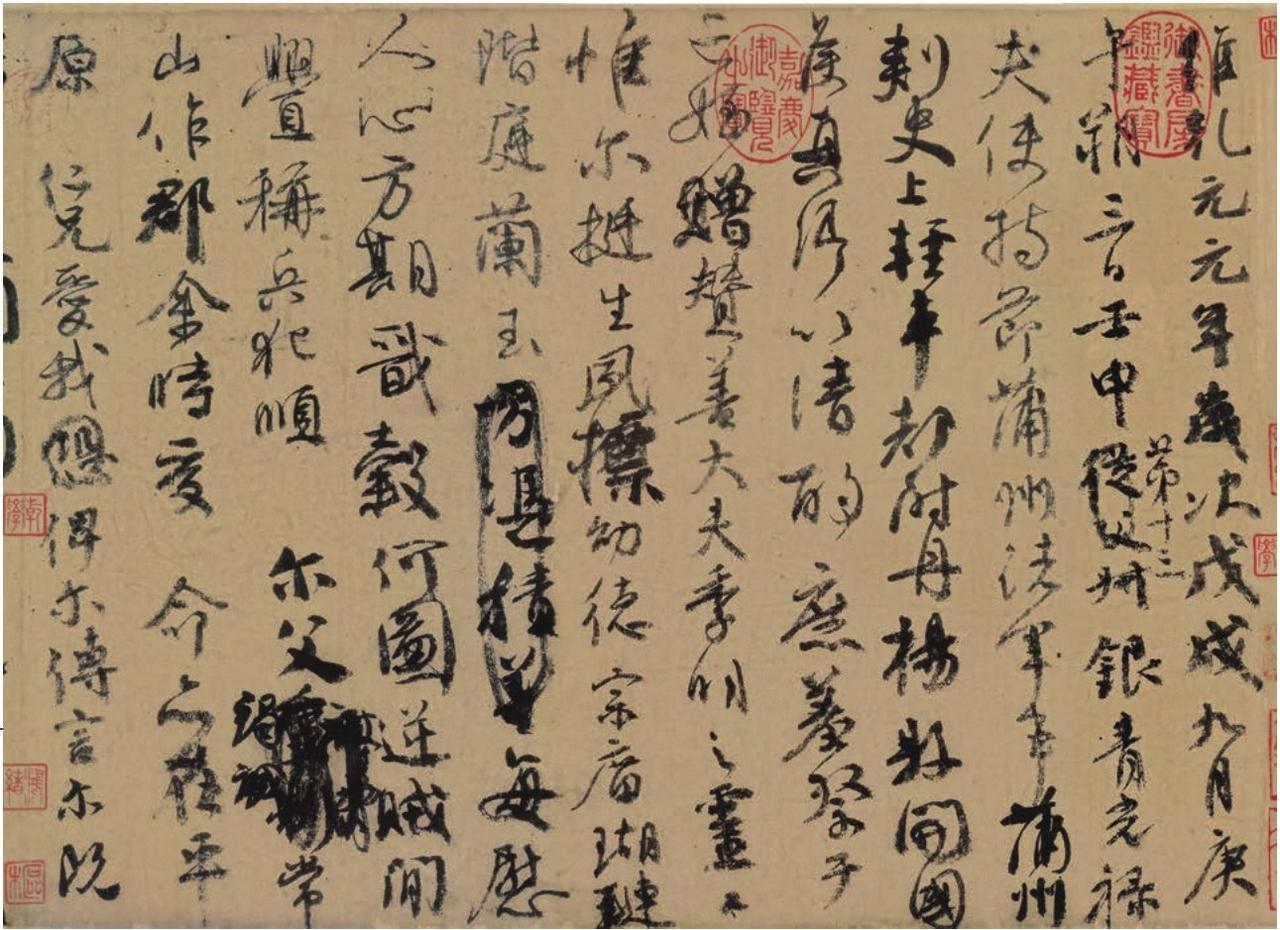 維乾元元年歲次戊戌九月庚
午朔三日壬申從父叔銀青光祿
第十三
夫使持節蒲州諸軍事蒲州
刺史上輕車都尉丹楊縣開國
侯真卿以清酌庶羞祭于
亡姪贈贊善大夫季明之靈曰
惟尔挺生夙標幼德宗廟瑚璉
階庭蘭玉方憑積善每慰
人心方期戩穀何圖逆賊閒
釁稱兵犯順尔父竭誠常
山作郡余時受命亦在平
原仁兄愛我恐俾尔傳言尔既
御書房鑑藏寶
嘉慶御覽之寶